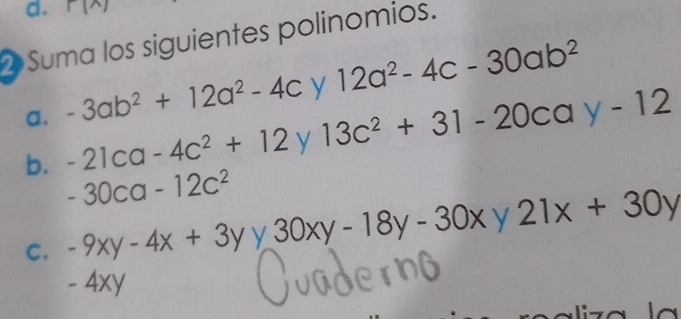 d. P(x)
2 Suma los siguientes polinomios.
a. - 3ab² + 12a² - 4c y 12a² - 4c - 30ab²
b. - 21ca - 4c² + 12 y 13c² + 31 - 20ca y - 12
- 30ca - 12c²
c. - 9xy - 4x + 3y y 30xy - 18y - 30x y 21x + 30y
- 4xy
Cuaderno